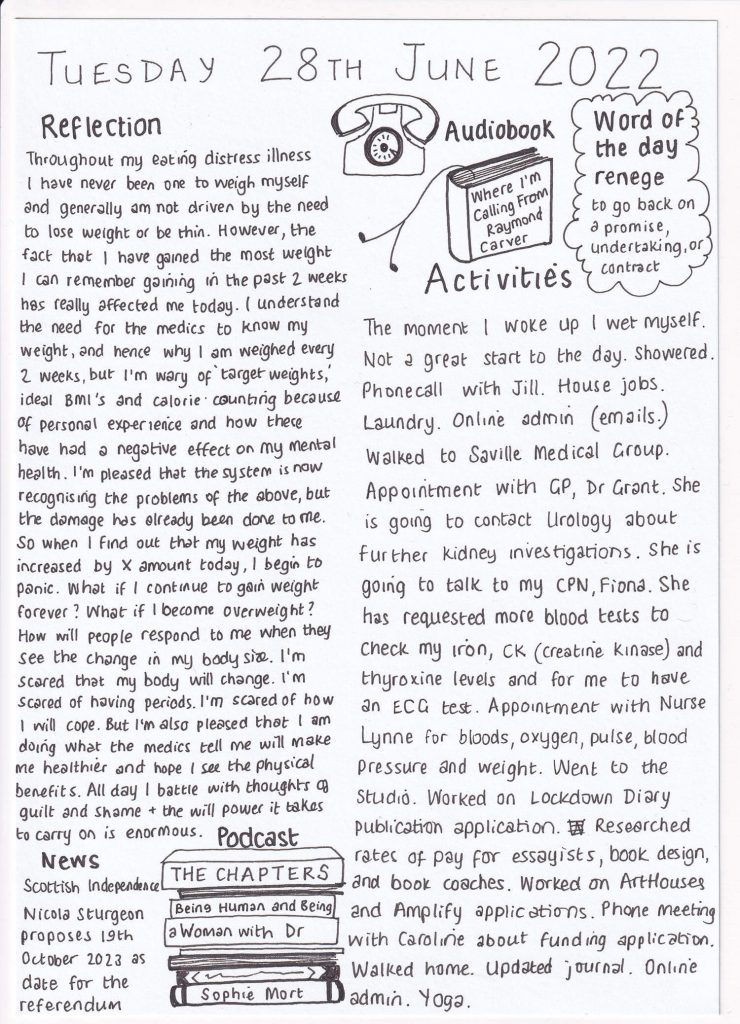 TUESDAY 28TH JUNE 2022
Reflection
Throughout my eating distress illness
I have never been one to weigh myself
and generally am not driven by the need
to lose weight or be thin. However, the
fact that I have gained the most weight
I can remember gaining in the past 2 weeks
has really affected me today. I understand
the need for the medics to know my
weight, and hence why I am weighed every
2 weeks, but I'm wary of 'target weights,'
ideal BMI's and calorie counting because
of personal experience and how these
have had a negative effect on my mental
health. I'm pleased that the system is now
recognising the problems of the above, but
the damage has already been done to me.
So when I find out that my weight has
increased by X amount today, I begin to
panic. What if I continue to gain weight
forever? What if I become overweight?
How will people respond to me when they
see the change in my body size. I'm
scared that my body will change. I'm
scared of having periods. I'm scared of how
I will cope. But I'm also pleased that I am
doing what the medics tell me will make
me healthier and hope I see the physical
benefits. All day I battle with thoughts of
guilt and shame + the will power it takes
to carry on is enormous.
News
Scottish Independence
Nicola Sturgeon
proposes 19th
October 2023 as
date for the
referendum
Podcast
THE CHAPTERS
Being Human and Being
a Woman with Dr
Sophie Mort
Audiobook
Where I'm
Calling From
Raymond
Carver
Word of
the day
renege
to go back on
a promise,
undertaking, or
contract
Activities
The moment I woke up I wet myself.
Not a great start to the day. Showered.
Phonecall with Jill. House jobs.
Laundry. Online admin (emails.)
Walked to Saville Medical Group.
Appointment with GP, Dr Grant. She
is going to contact Urology about
further kidney investigations. She is
going to talk to my CPN, Fiona. She
has requested more blood tests to
check my iron, CK (creatine kinase) and
thyroxine levels and for me to have
an ECG test. Appointment with Nurse
Lynne for bloods, oxygen, pulse, blood
pressure and weight. Went to the
Studio. Worked on Lockdown Diary
publication application. Researched
rates of pay for essayists, book design,
and book coaches. Worked on ArtHouses
and Amplify applications. Phone meeting
with Caroline about funding application.
Walked home. Updated journal. Online
admin. Yoga.